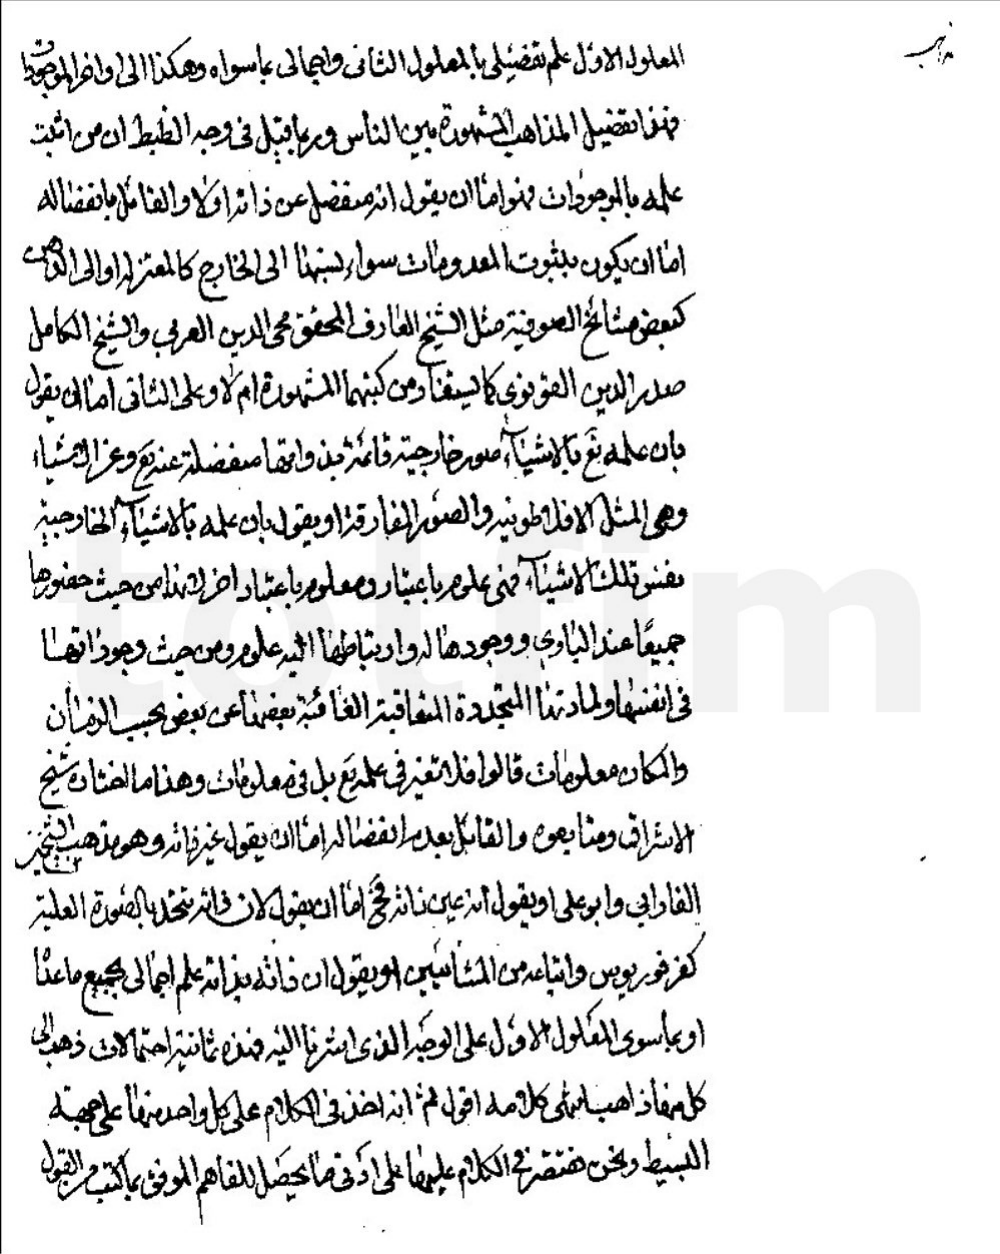 مذاهب
المعلول الاول علم تفصيلى بالمعلول الثانى واجمالى بما سواه وهكذا الى اواخر الموجودات
فهذا تفصيل المذاهب المشهورة بين الناس وربما قيل فى وجه الضبط ان من اثبت
علمه بالموجودات فهو اما ان يقول انه منفصل عن ذاته اولا والقائل بانفصاله
اما ان يكون بثبوت المعدومات سواء نسبتها الى الخارج كالمعتزله او الى الذهن
كبعض مشائخ الصوفية مثل الشيخ العارف المحقق محى الدين العربي والشيخ الكامل
صدر الدين القونوى كما يستفاد من كتبهما المشهورة ام لا وعلى الثانى اما ان يقول
بان علمه تع بالاشياء صور خارجية قائمة بذواتها منفصلة عنه تع وعن الاشياء
وهى المثل الافلاطونيه والصور المفارقة او يقول بان علمه بالاشياء الخارجية
نفس تلك الاشياء فهى علوم باعتبار ومعلوم باعتبار اخر لانها من حيث حضورها
جميعا عند البارى ووجودها له وارتباطها اليه علوم ومن حيث وجوداتها
فى انفسها ولمادتها المتجددة المتعاقبة الغائبة بعضها عن بعض بحسب الزمان
والمكان معلومات قالوا فلا تغير فى علمه تع بل فى معلومات وهذا ما اختاره شيخ
الاشراق ومتابعوه والقائل بعدم انفصاله اما ان يقول غير ذاته وهو مذهب الشيخين
الفارابي وابو على او يقول انه عين ذاته فح اما ان يقول لان ذاته يتحد بالصورة العلمية
كفرفوريوس واتباعه من المشائيين او يقول ان ذاته بذاته علم اجمالى بجميع ما عدا
او بما سوى المعلول الاول على الوجه الذى اشرنا اليه فهذه ثمانية احتمالات ذهب الى
كل منها ذاهب انتهى كلامه اقول ثم انه اخذ فى الكلام على كل واحد منها على جهة
البسيط ونحن نقتصر فى الكلام عليها على ادنى ما يحصل للفاهم الموفق بما كتب من القول